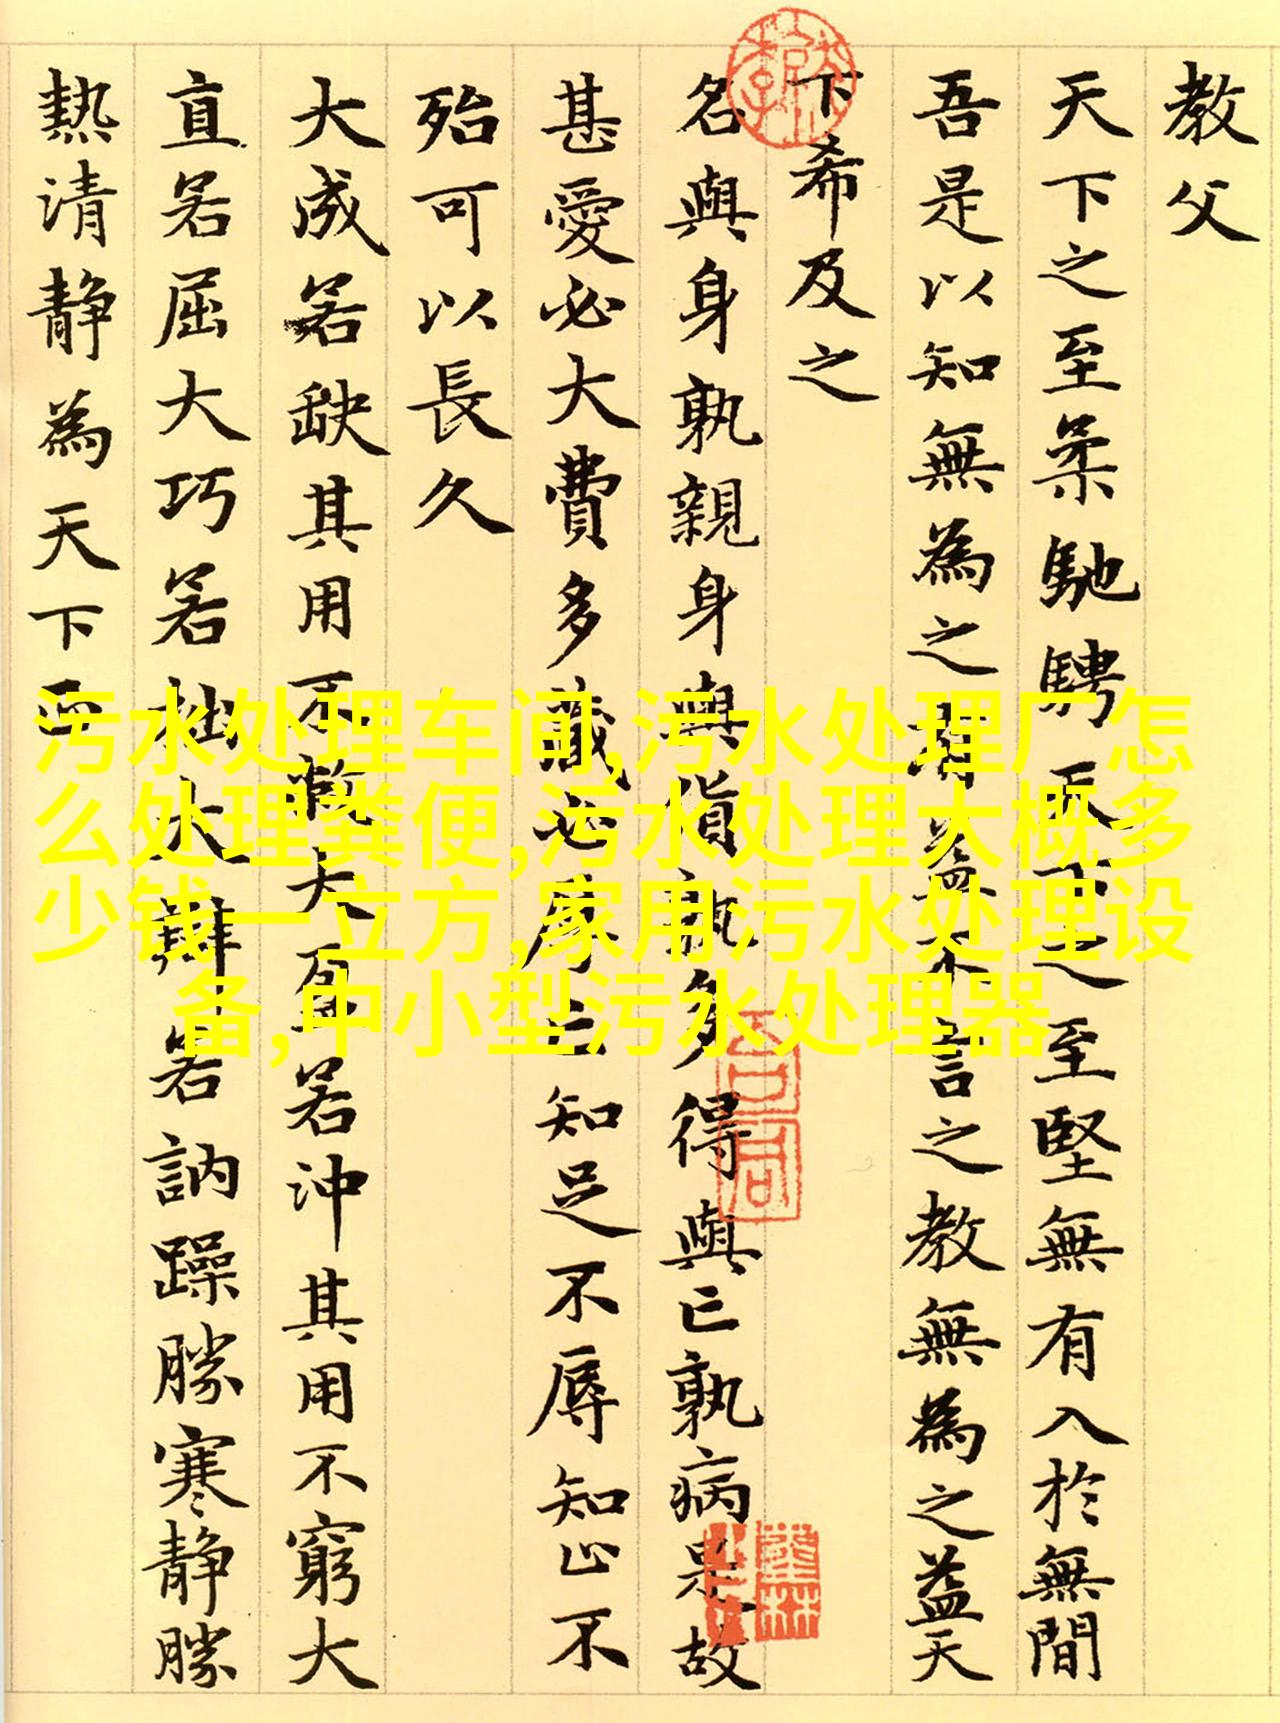 教父
天下之至柔馳騁天下之至堅無有入於無間
吾是以知無為之有益不言之教無為之益天
下希及之
名與身孰親身與貨孰多得與亡孰病是故
甚愛必大費多藏必厚亡知足不辱知止不
殆可以長久
大成若缺其用不敝大盈若沖其用不窮大
直若屈大巧若拙大辯若訥躁勝寒静勝
熱清静為天下正
污水处理车间,污水处理厂怎
么处理粪便,污水处理大概多
少钱一立方,家用污水处理设
备,中小型污水处理器